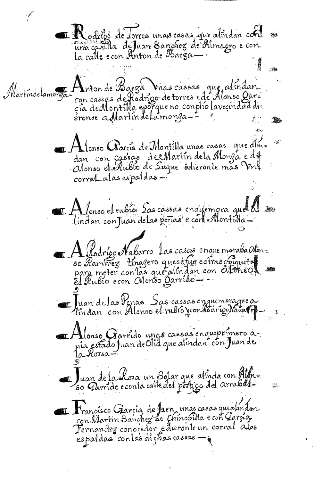 Rodrigo de Torres unas casas que alindan con
una casilla de Juan Sanchez de Almagro e con
la calle e con Anton de Baeza —
Martin de la monga
Anton de Baeza Unas cassas que alindan
con casas de Rodrigo de torres e de Alonso Gar
cia de Montilla porque no conplio la vezindad di
eronse a Martin de la monga —
Alonso Garcia de Montilla unas casas que alin
dan con cassas de Martin de la Monga e de
Alonso el Rubio de Luque e dieronte mas un
corral a las espaldas —
Alonso el rubio Las cassas en que mora que a
lindan con Juan de las peñas e con Montilla —
A Rodrigo Nabarro Las casas en que moraba Alon
so Ramirez tinagero que es
para meter con las que alindan con Alonso
el Rubio e con Alonso Garrido —
Juan de las Penas Las cassas en que mora que a
lindan con Alonso el rubio y con Rodrigo Navarro
Alonso Garrido unas cassas en que primero a
via estado Juan de Olid que alindan con Juan de
la Rossa —
Juan de la Rosa un Solar que alinda con Alon
so Garrido e con la calle del postigo del arrabal —
Francisco Garcia de Jaen unas casas que alindan
con Martin Sanchez de Chinchilla e con Garcia
Fernandez conocedor e daronle un corral a las
espaldas con las dichas cassas —